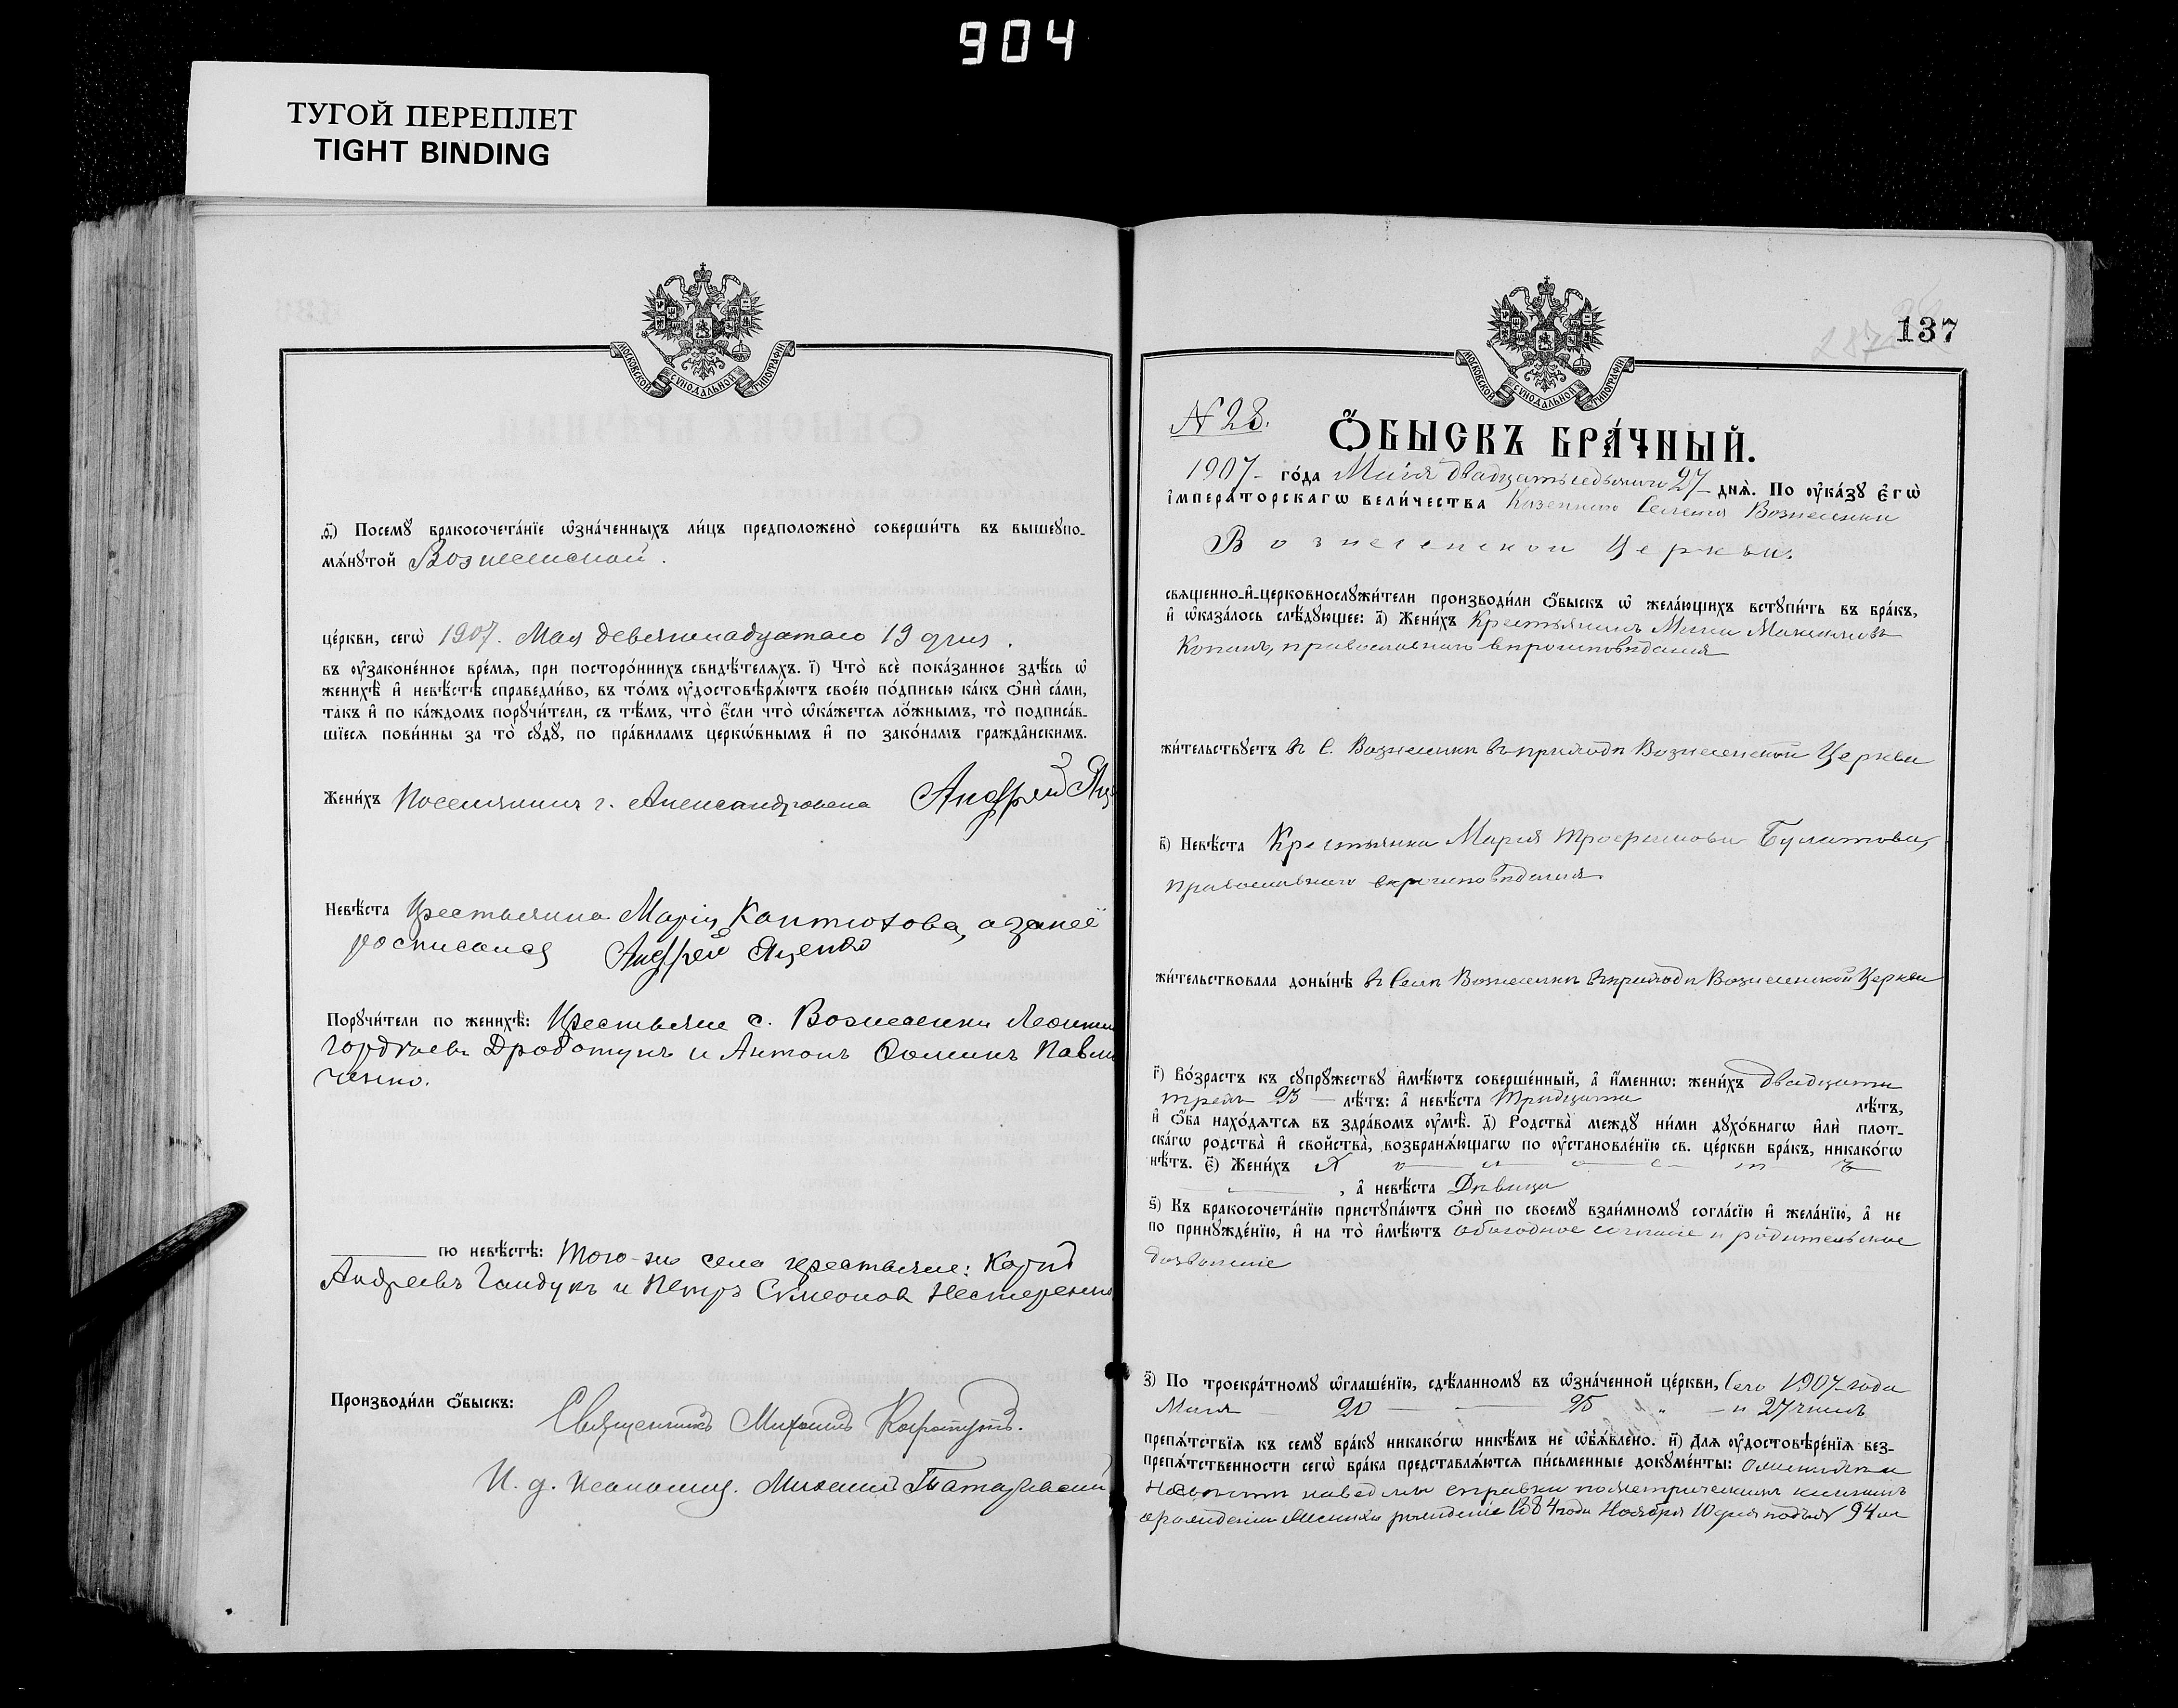 904
ТУГОЙ ПЕРЕПЛЕТ
TIGHT BINDING
МОСКОВСКОЙ СУНОДАЛЬНОЙ ТИПОГРАФІИ
ѳ҃) Посемꙋ̀ бракосочета́нїе ѡ҆зна́ченныхъ ли́цъ предположено̀ соверши́ть въ вышеꙋпо-
мѧ́нꙋтой Вознесенской.
це́ркви, сегѡ̀ 1907. Мая девятнадцатаго 19 дня.
въ ᲂу҆законе́нное вре́мѧ, при посторо́ннихъ свидѣ́телѧхъ. і҃) Что̀ всѐ пока́занное здѣ́сь ѡ҆
женихѣ̀ и҆ невѣ́стѣ справедли́во, въ то́мъ ᲂу҆достовѣрѧ́ютъ свое́ю по́дписью ка́къ ѻ҆нѝ са́ми,
та́къ и҆ по ка́ждомъ порꙋчи́тели, съ тѣ́мъ, что̀ є҆́сли что̀ ѡ҆ка́жетсѧ ло́жнымъ, то̀ подписа́в-
шїесѧ пови́нны за то̀ сꙋдꙋ̀, по пра́виламъ церко́внымъ и҆ по зако́намъ гражда́нскимъ.
Жени́хъ Поселянинъ г. Александровска Андрей Яц
Невѣ́ста Крестьянка Марія Каптюхова, а за нее
росписался Андрей Яценко
Порꙋчи́тели по женихѣ̀: Крестьяне с. Вознесенки
Гордѣевъ Дроботунъ и Антонъ Ѳоминъ Павли
ченко.
по невѣ́стѣ: Того-же села крестьяне: Карпъ
Андреевъ Гайдукъ и Петръ Симеоновъ Нестеренко
Производи́ли ѻ҆́быскъ: Священникъ Михаилъ
И. д. псаломщ. Михаилъ Татарскій
137
МОСКОВСКОЙ СУНОДАЛЬНОЙ ТИПОГРАФІИ
N 28.
Ѻ҆́БЫСКЪ БРА́ЧНЫЙ.
1907 го́да Мая двадцать седьмого 27 днѧ̀. По ᲂу҆ка́зꙋ є҆гѡ̀
і҆мпера́торскагѡ вели́чества Казенного Селенія Вознесенки
Вознесенской Церкви.
свѧще́нно-и҆-церковнослꙋжи́тели производи́ли ѻ҆́быскъ ѡ҆ жела́ющихъ встꙋпи́ть въ бра́къ,
и҆ ѡ҆каза́лось слѣ́дꙋющее: а҃) Жени́хъ Крестьянинъ
православнаго вѣроисповѣданія
жи́тельствꙋетъ въ С. Вознесенки въ приходѣ Вознесенской Церкви
в҃) Невѣ́ста Крестьянка Марія Трофимова Булатова,
православнаго вѣроисповѣданія.
жи́тельствовала доны́нѣ въ Селѣ Вознесенкѣ въ приходѣ Вознесенской Церкви
г҃) Во́зрастъ къ сꙋпрꙋ́жествꙋ и҆мѣ́ютъ соверше́нный, а҆ и҆́меннѡ: жени́хъ двадцати
трехъ 23 лѣ́тъ: а҆ невѣ́ста Тридцати лѣ́тъ,
и҆ ѻ҆́ба нахо́дѧтсѧ въ здра́вомъ ᲂу҆мѣ̀. д҃) Родства̀ междꙋ̀ ни́ми дꙋхо́внагѡ и҆лѝ плот-
ска́гѡ родства̀ и҆ сво́йства, возбранѧ́ющагѡ по ᲂу҆становле́нїю св. це́ркви бра́къ, никако́гѡ
нѣ́тъ. є҃) Жени́хъ Холостъ
, а҆ невѣ́ста Дѣвица
ѕ҃) Къ бракосочета́нїю пристꙋпа́ютъ ѻ҆нѝ по своемꙋ̀ взаи́мномꙋ согла́сїю и҆ жела́нїю, а҆ не
по принꙋжде́нїю, и҆ на то̀ и҆мѣ́ютъ обоюдное согласіе и родительское
дозволеніе
з҃) По троекра́тномꙋ ѡ҆глаше́нїю, сдѣ́ланномꙋ въ ѡ҆зна́ченной це́ркви, Сего 1907 года
Мая 20 25 и 27 чиселъ
препѧ́тствїѧ къ семꙋ̀ бра́кꙋ никако́гѡ никѣ́мъ не ѡ҆б̾ѧ́влено. и҃) Длѧ ᲂу҆достовѣре́нїѧ без-
препѧ́тственности сегѡ̀ бра́ка представлѧ́ютсѧ пи́сьменные докꙋме́нты:
наведены справки по метрическимъ книгамъ
о рожденіи Жениха рожденіе 1884 года Ноября 10 дня подъ № 94 м